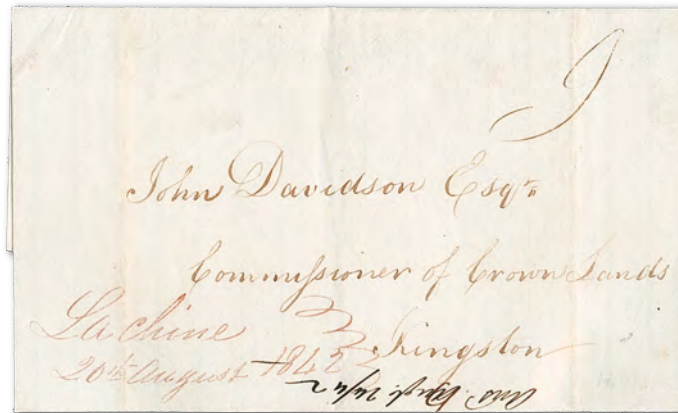 John Davidson Esqr
Commissioner of Crown Lands
Kingston
Lachine
20th August 1842